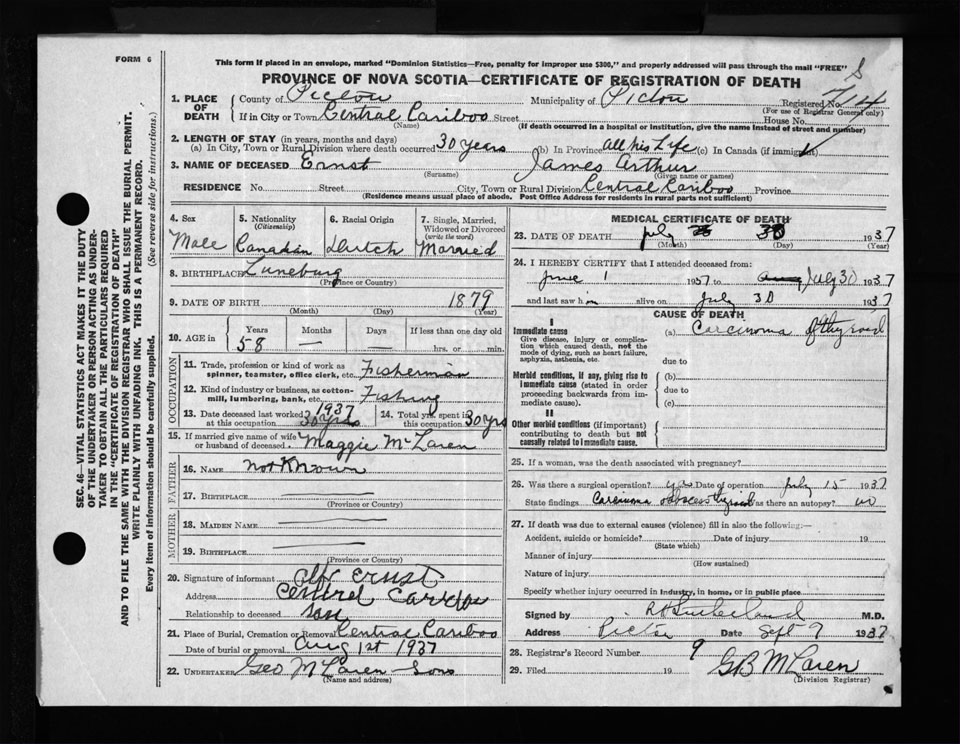 FORM 6
This form if placed in an envelope, marked "Dominion Statistics—Free, penalty for improper use $300," and properly addressed will pass through the mail "FREE"
PROVINCE OF NOVA SCOTIA—CERTIFICATE OF REGISTRATION OF DEATH
SEC. 46—VITAL STATISTICS ACT MAKES IT THE DUTY
OF THE UNDERTAKER OR PERSON ACTING AS UNDER-
TAKER TO OBTAIN ALL THE PARTICULARS REQUIRED
IN THE "CERTIFICATE OF REGISTRATION OF DEATH"
AND TO FILE THE SAME WITH THE DIVISION REGISTRAR, WHO SHALL ISSUE THE BURIAL PERMIT.
WRITE PLAINLY WITH UNFADING INK. THIS IS A PERMANENT RECORD.
Every item of information should be carefully supplied. (See reverse side for instructions.)
1. PLACE OF DEATH County of Pictou Municipality of Pictou Registered No. 414
(For use of Registrar General only)
If in City or Town Central Cariboo Street House No.
(Name) (If death occurred in a hospital or institution, give the name instead of street and number)
2. LENGTH OF STAY (in years, months and days)
(a) In City, Town or Rural Division where death occurred 30 years (b) In Province all his life (c) In Canada (if immigrant)
3. NAME OF DECEASED Ernst James Arthur
(Surname) (Given name or names)
RESIDENCE No. Street City, Town or Rural Division Central Cariboo Province
(Residence means usual place of abode. Post Office Address for residents in rural parts not sufficient)
4. Sex
Male
5. Nationality
(Citizenship)
Canadian
6. Racial Origin
Dutch
7. Single, Married,
Widowed or Divorced
(write the word)
Married
8. BIRTHPLACE Luneburg
(Province or Country)
9. DATE OF BIRTH 1879
(Month) (Day) (Year)
10. AGE in Years Months Days If less than one day old
58 — — hrs. or min.
OCCUPATION
11. Trade, profession or kind of work as
spinner, teamster, office clerk, etc. Fisherman
12. Kind of industry or business, as cotton-
mill, lumbering, bank, etc. Fishing
13. Date deceased last worked
at this occupation 1937 30 yrs
14. Total yrs. spent in
this occupation 30 yrs
15. If married give name of wife
or husband of deceased Maggie McLaren
FATHER
16. NAME not Known
17. BIRTHPLACE
(Province or Country)
MOTHER
18. MAIDEN NAME
19. BIRTHPLACE
(Province or Country)
20. Signature of informant Ernst
Address Central Cariboo
Relationship to deceased son
21. Place of Burial, Cremation or Removal Central Cariboo
Date of burial or removal Aug 1st 1937
22. UNDERTAKER Geo McLaren Sons
(Name and address)
MEDICAL CERTIFICATE OF DEATH
23. DATE OF DEATH July 30 1937
(Month) (Day) (Year)
24. I HEREBY CERTIFY that I attended deceased from:
June 1 1937 to July 30 1937
and last saw him alive on July 30 1937
CAUSE OF DEATH
I
Immediate cause (a) Carcinoma of thyroid
Give disease, injury or complica-
tion which caused death, not the
mode of dying, such as heart failure,
asphyxia, asthenia, etc.
due to
Morbid conditions, if any, giving rise to (b)
immediate cause (stated in order
proceeding backwards from im-
mediate cause).
due to
(c)
II
Other morbid conditions (if important)
contributing to death but not
causally related to immediate cause.
25. If a woman, was the death associated with pregnancy?
26. Was there a surgical operation? yes Date of operation July 15 1937
State findings Carcinoma thyroid Was there an autopsy? no
27. If death was due to external causes (violence) fill in also the following:—
Accident, suicide or homicide? Date of injury 19
(State which)
Manner of injury
(How sustained)
Nature of injury
Specify whether injury occurred in industry, in home, or in public place
Signed by Sutherland M.D.
Address Pictou Date Sept 9 1937
28. Registrar's Record Number 9
29. Filed 19 GB McLaren
(Division Registrar)